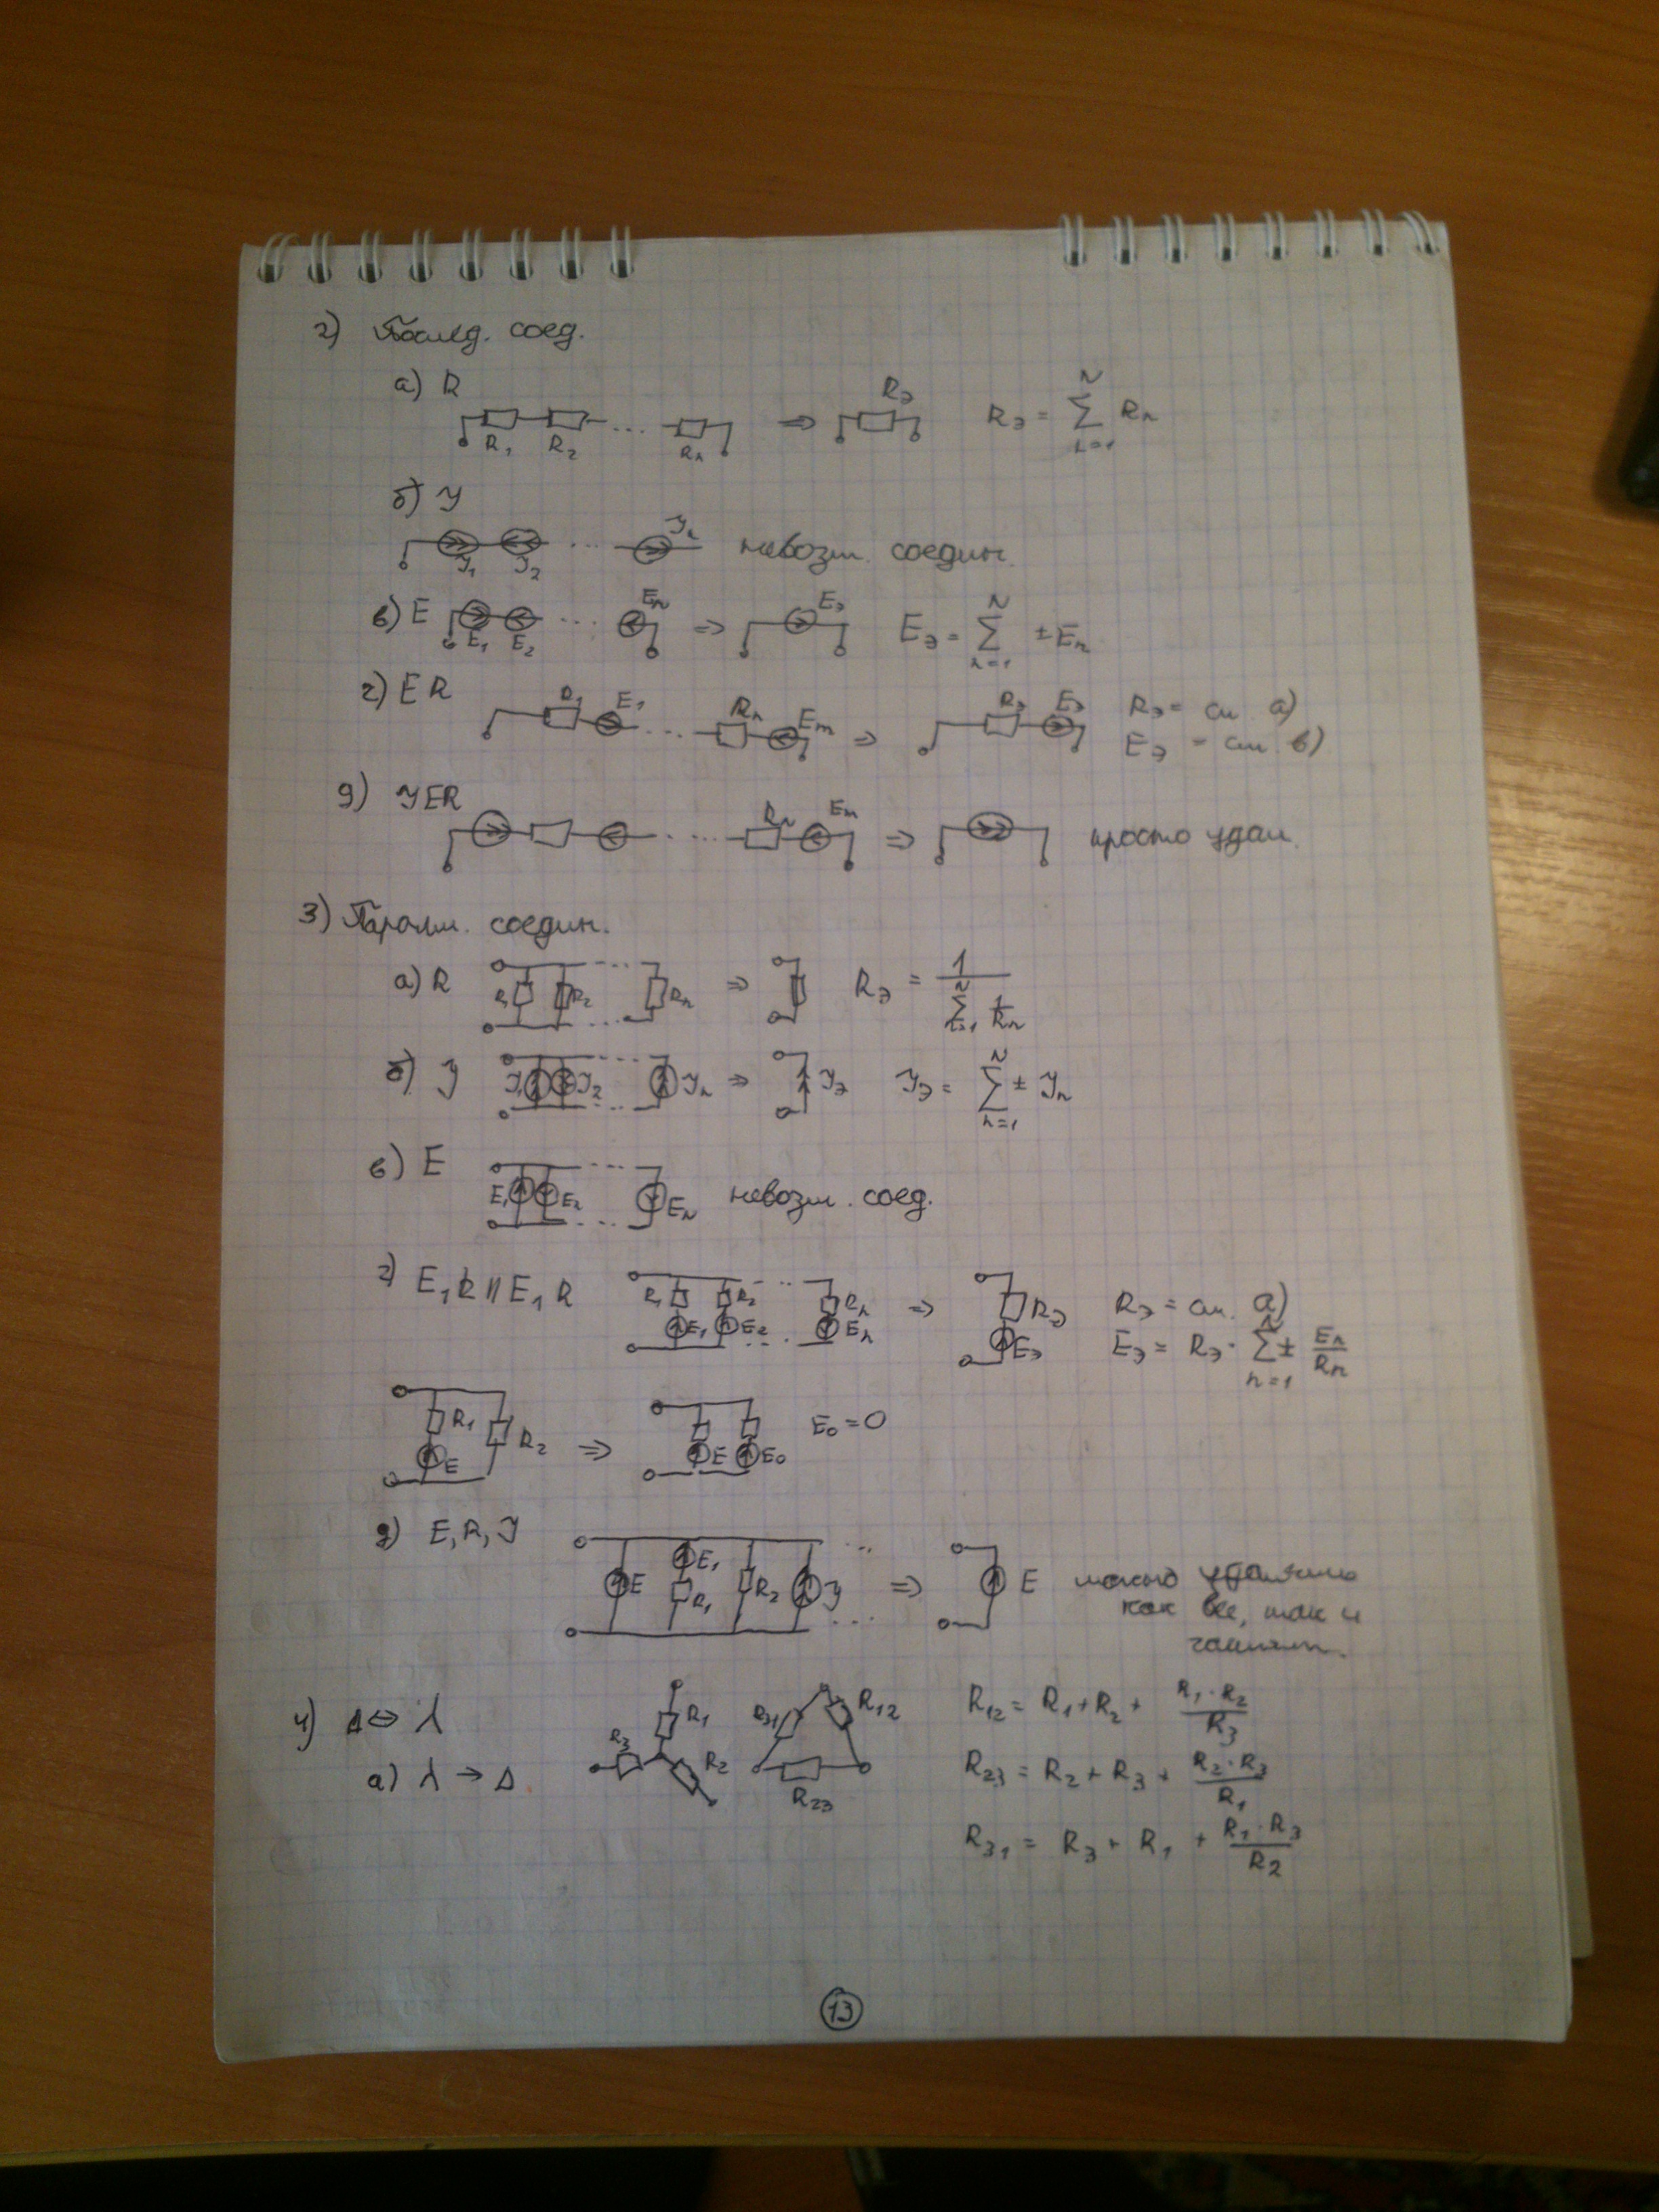 2) Послед. соед.
а) R
R₁ R₂ ... Rn ⇒ Rэ Rэ = ∑ₙ₌₁ᴺ Rn
б) J
J₁ J₂ ... Jn невозм. соедин.
в) E E₁ E₂ ... En ⇒ Eэ Eэ = ∑ₙ₌₁ᴺ ±En
г) ER R₁ E₁ ... Rn Em ⇒ Rэ Eэ Rэ = см. а)
Eэ = см. в)
д) JER ... Rn Em ⇒ просто удал.
3) Паралл. соедин.
а) R R₁ R₂ ... Rn ⇒ Rэ = 1 / ∑ₙ₌₁ᴺ 1/Rn
б) J J₁ J₂ ... Jn ⇒ Jэ Jэ = ∑ₙ₌₁ᴺ ± Jn
в) E E₁ E₂ ... En невозм. соед.
г) E₁R || E₁R R₁ R₂ ... Rn E₁ E₂ En ⇒ Rэ Eэ Rэ = см. а)
Eэ = Rэ · ∑ₙ₌₁ᴺ ± En/Rn
R₁ E R₂ ⇒ E E₀ E₀ = 0
д) E, R, J E E₁ R₁ R₂ J ... ⇒ E можно
как все, так и
4) Δ ⇔ λ
а) λ → Δ R₁ R₂ R₃ R₃₁ R₁₂ R₂₃
R₁₂ = R₁ + R₂ + R₁·R₂/R₃
R₂₃ = R₂ + R₃ + R₂·R₃/R₁
R₃₁ = R₃ + R₁ + R₁·R₃/R₂
13